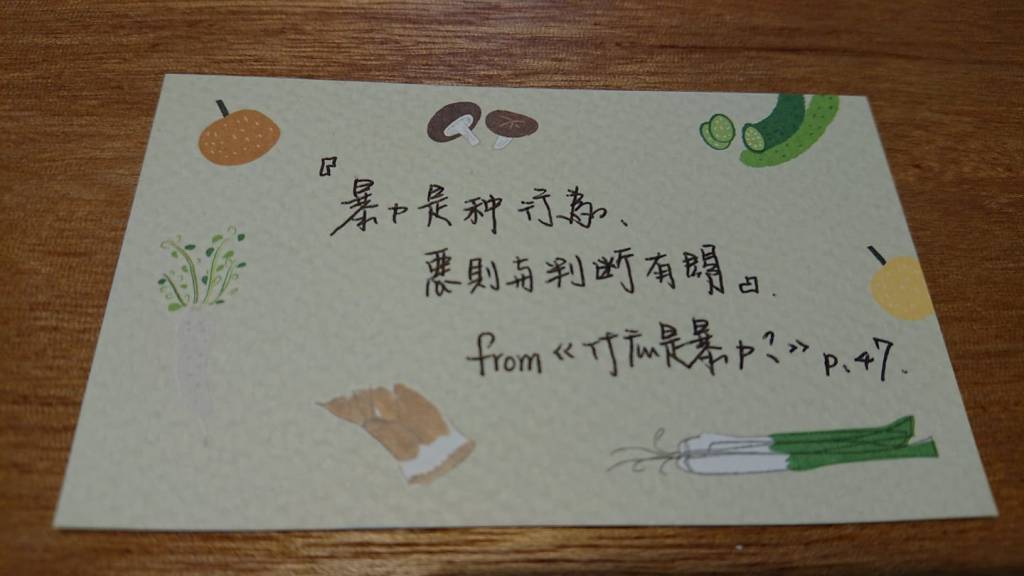 『暴力是种行為、
惡則与判断有關』.
from《什麼是暴力？》p.47.